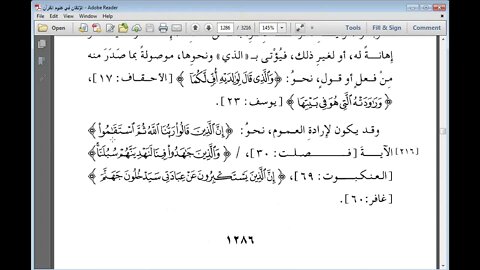 الإتقان في علوم القرآن - Adobe Reader
1286 / 3216 145% Fill & Sign Comment
إهانةً له، أو لغيرِ ذلك، فيُؤْتى بـ «الذي» ونحوِها، موصولةً بما صَدَرَ منه
مِنْ فعلٍ أو قولٍ، نحوُ: ﴿وَالَّذِي قَالَ لِوَالِدَيْهِ أُفٍّ لَكُمَا﴾ [الأحقاف: ١٧]،
﴿وَرَاوَدَتْهُ الَّتِي هُوَ فِي بَيْتِهَا﴾ [يوسف: ٢٣].
وقد يكون لإرادةِ العمومِ، نحوُ: ﴿إِنَّ الَّذِينَ قَالُوا رَبُّنَا اللَّهُ ثُمَّ اسْتَقَامُوا﴾
[٢١٦] الآيةَ [فصلت: ٣٠]، / ﴿وَالَّذِينَ جَاهَدُوا فِينَا لَنَهْدِيَنَّهُمْ سُبُلَنَا﴾
[العنكبوت: ٦٩]، ﴿إِنَّ الَّذِينَ يَسْتَكْبِرُونَ عَنْ عِبَادَتِي سَيَدْخُلُونَ جَهَنَّمَ﴾
[غافر: ٦٠].
١٢٨٦